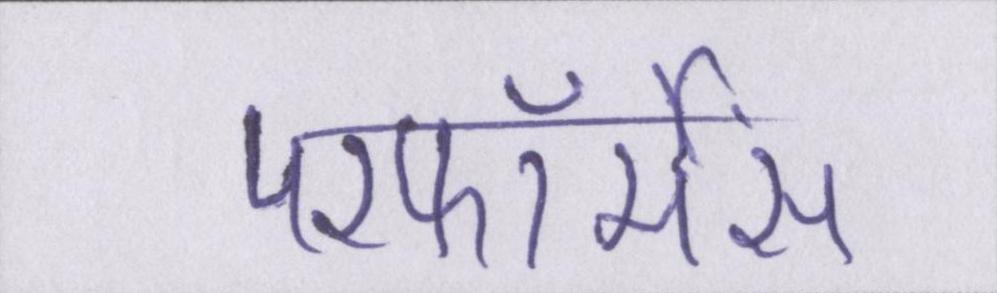 परफॉर्मेंस